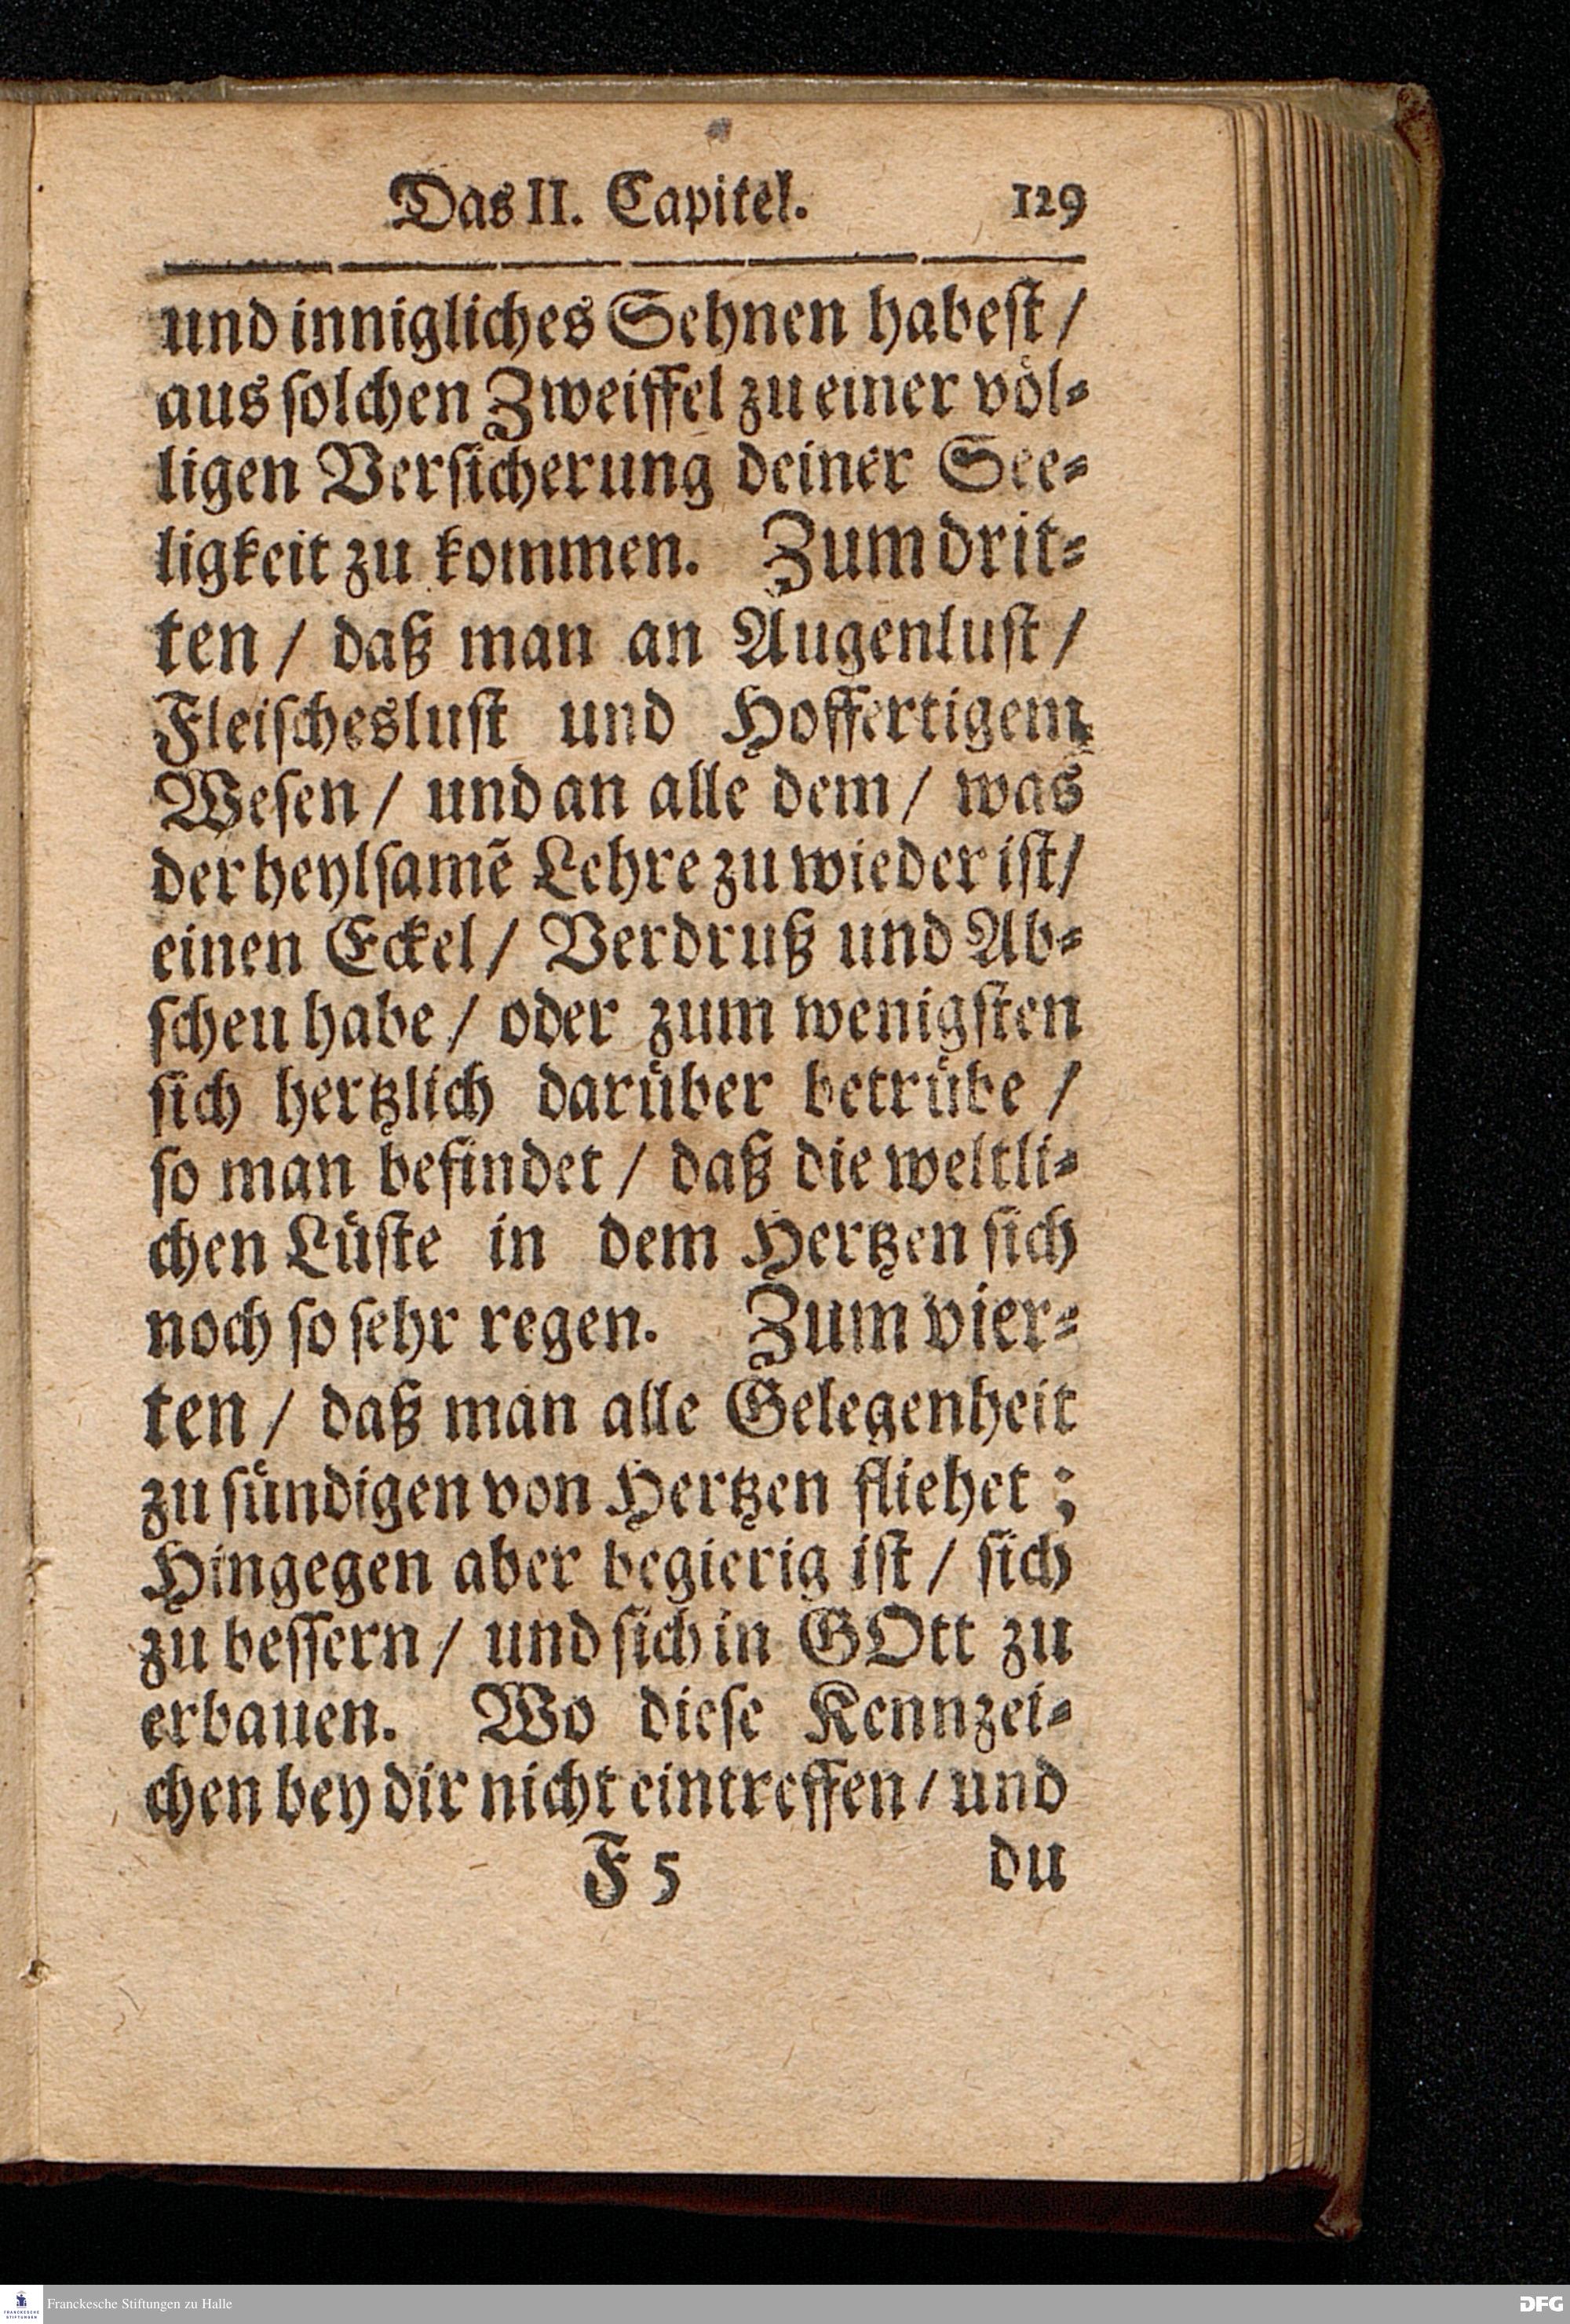 Das II. Capitel. 129
und innigliches Sehnen habest /
aus solchen Zweiffel zu einer völ-
ligen Versicherung deiner See-
ligkeit zu kommen. Zum drit-
ten / daß man an Augenlust /
Fleischeslust und Hoffertigem
Wesen / und an alle dem / was
der heylsamẽ Lehre zu wieder ist /
einen Eckel / Verdruß und Ab-
scheu habe / oder zum wenigsten
sich hertzlich darüber betrübe /
so man befindet / daß die weltli-
chen Lüste in dem Hertzen sich
noch so sehr regen. Zum vier-
ten / daß man alle Gelegenheit
zu sündigen von Hertzen fliehet ;
Hingegen aber begierig ist / sich
zu bessern / und sich in GOtt zu
erbauen. Wo diese Kennzei-
chen bey dir nicht eintreffen / und
F 5 du
FRANCKESCHE STIFTUNGEN
Franckesche Stiftungen zu Halle
DFG